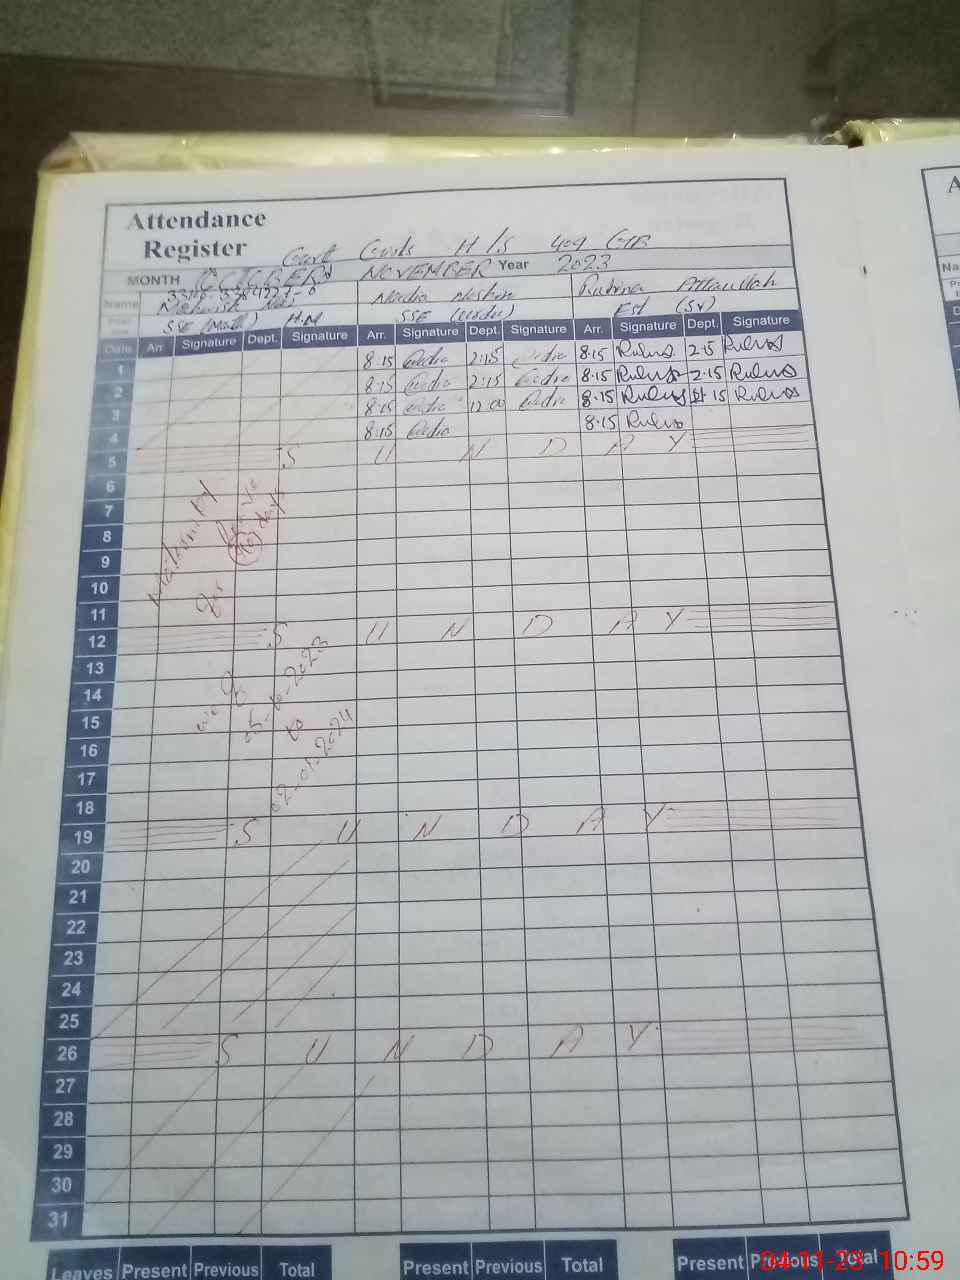 Attendance
Register
Govt Girls H/S 409 G/B
MONTH OCTOBER NOVEMBER Year 2023
Name Mehwish Nadia Noshin Rubina Attaullah
SSE (Math) H.M SSE (Urdu) Est (Sr)
Date Arr. Signature Dept. Signature Arr. Signature Dept. Signature Arr. Signature Dept. Signature
1 8:15 2:15 8:15 2:15
2 8:15 2:15 8:15 2:15
3 8:15 12:00 8:15 15
4 8:15 8:15
5 S U N D A Y
6
7
8
9
10
11
12 S U N D A Y
13
14
15
16
17
18
19 S U N D A Y
20
21
22
23
24
25
26 S U N D A Y
27
28
29
30
31
Maternity
Leave
for 90 days
w.e.f
05-10-2023
to
02-01-2024
Leaves Present Previous Total Present Previous Total Present Previous Total
04-11-23 10:59